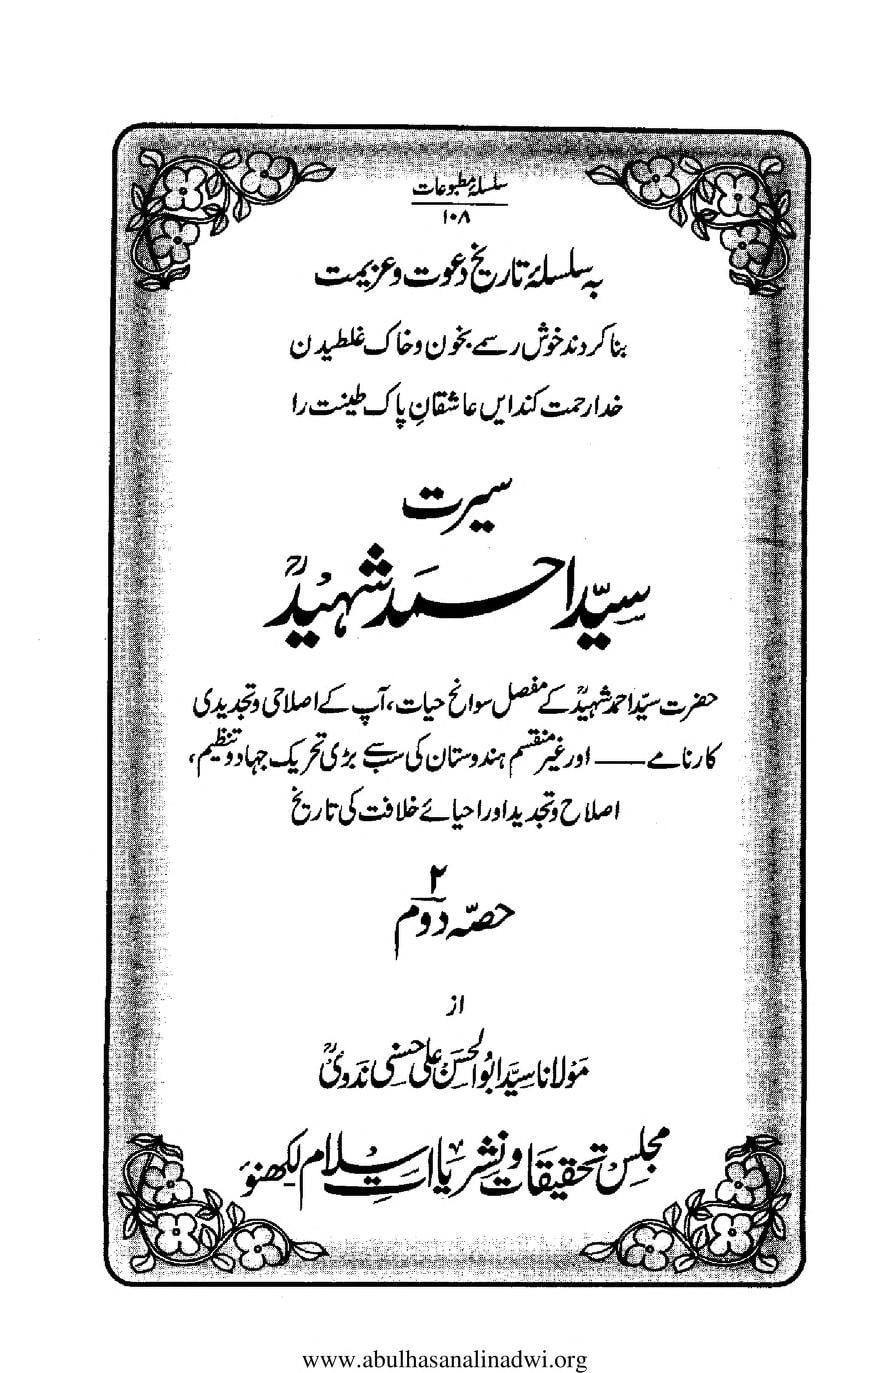 سلسلۂ مطبوعات
۱۰۸
بہ سلسلۂ تاریخ دعوت و عزیمت
بنا کردند خوش رسمے بخون و خاک غلطیدن
خدا رحمت کند ایں عاشقانِ پاک طینت را
سیرت
سیّد احمد شہیدؒ
حضرت سیّد احمد شہیدؒ کے مفصل سوانح حیات، آپ کے اصلاحی و تجدیدی
کارنامے —— اور غیر منقسم ہندوستان کی سب سے بڑی تحریک جہاد و تنظیم،
اصلاح و تجدید اور احیائے خلافت کی تاریخ
۲
حصّہ دوم
از
مولانا سیّد ابوالحسن علی حسنی ندویؒ
مجلس تحقیقات و نشریات اسلام لکھنؤ
www.abulhasanalinadwi.org